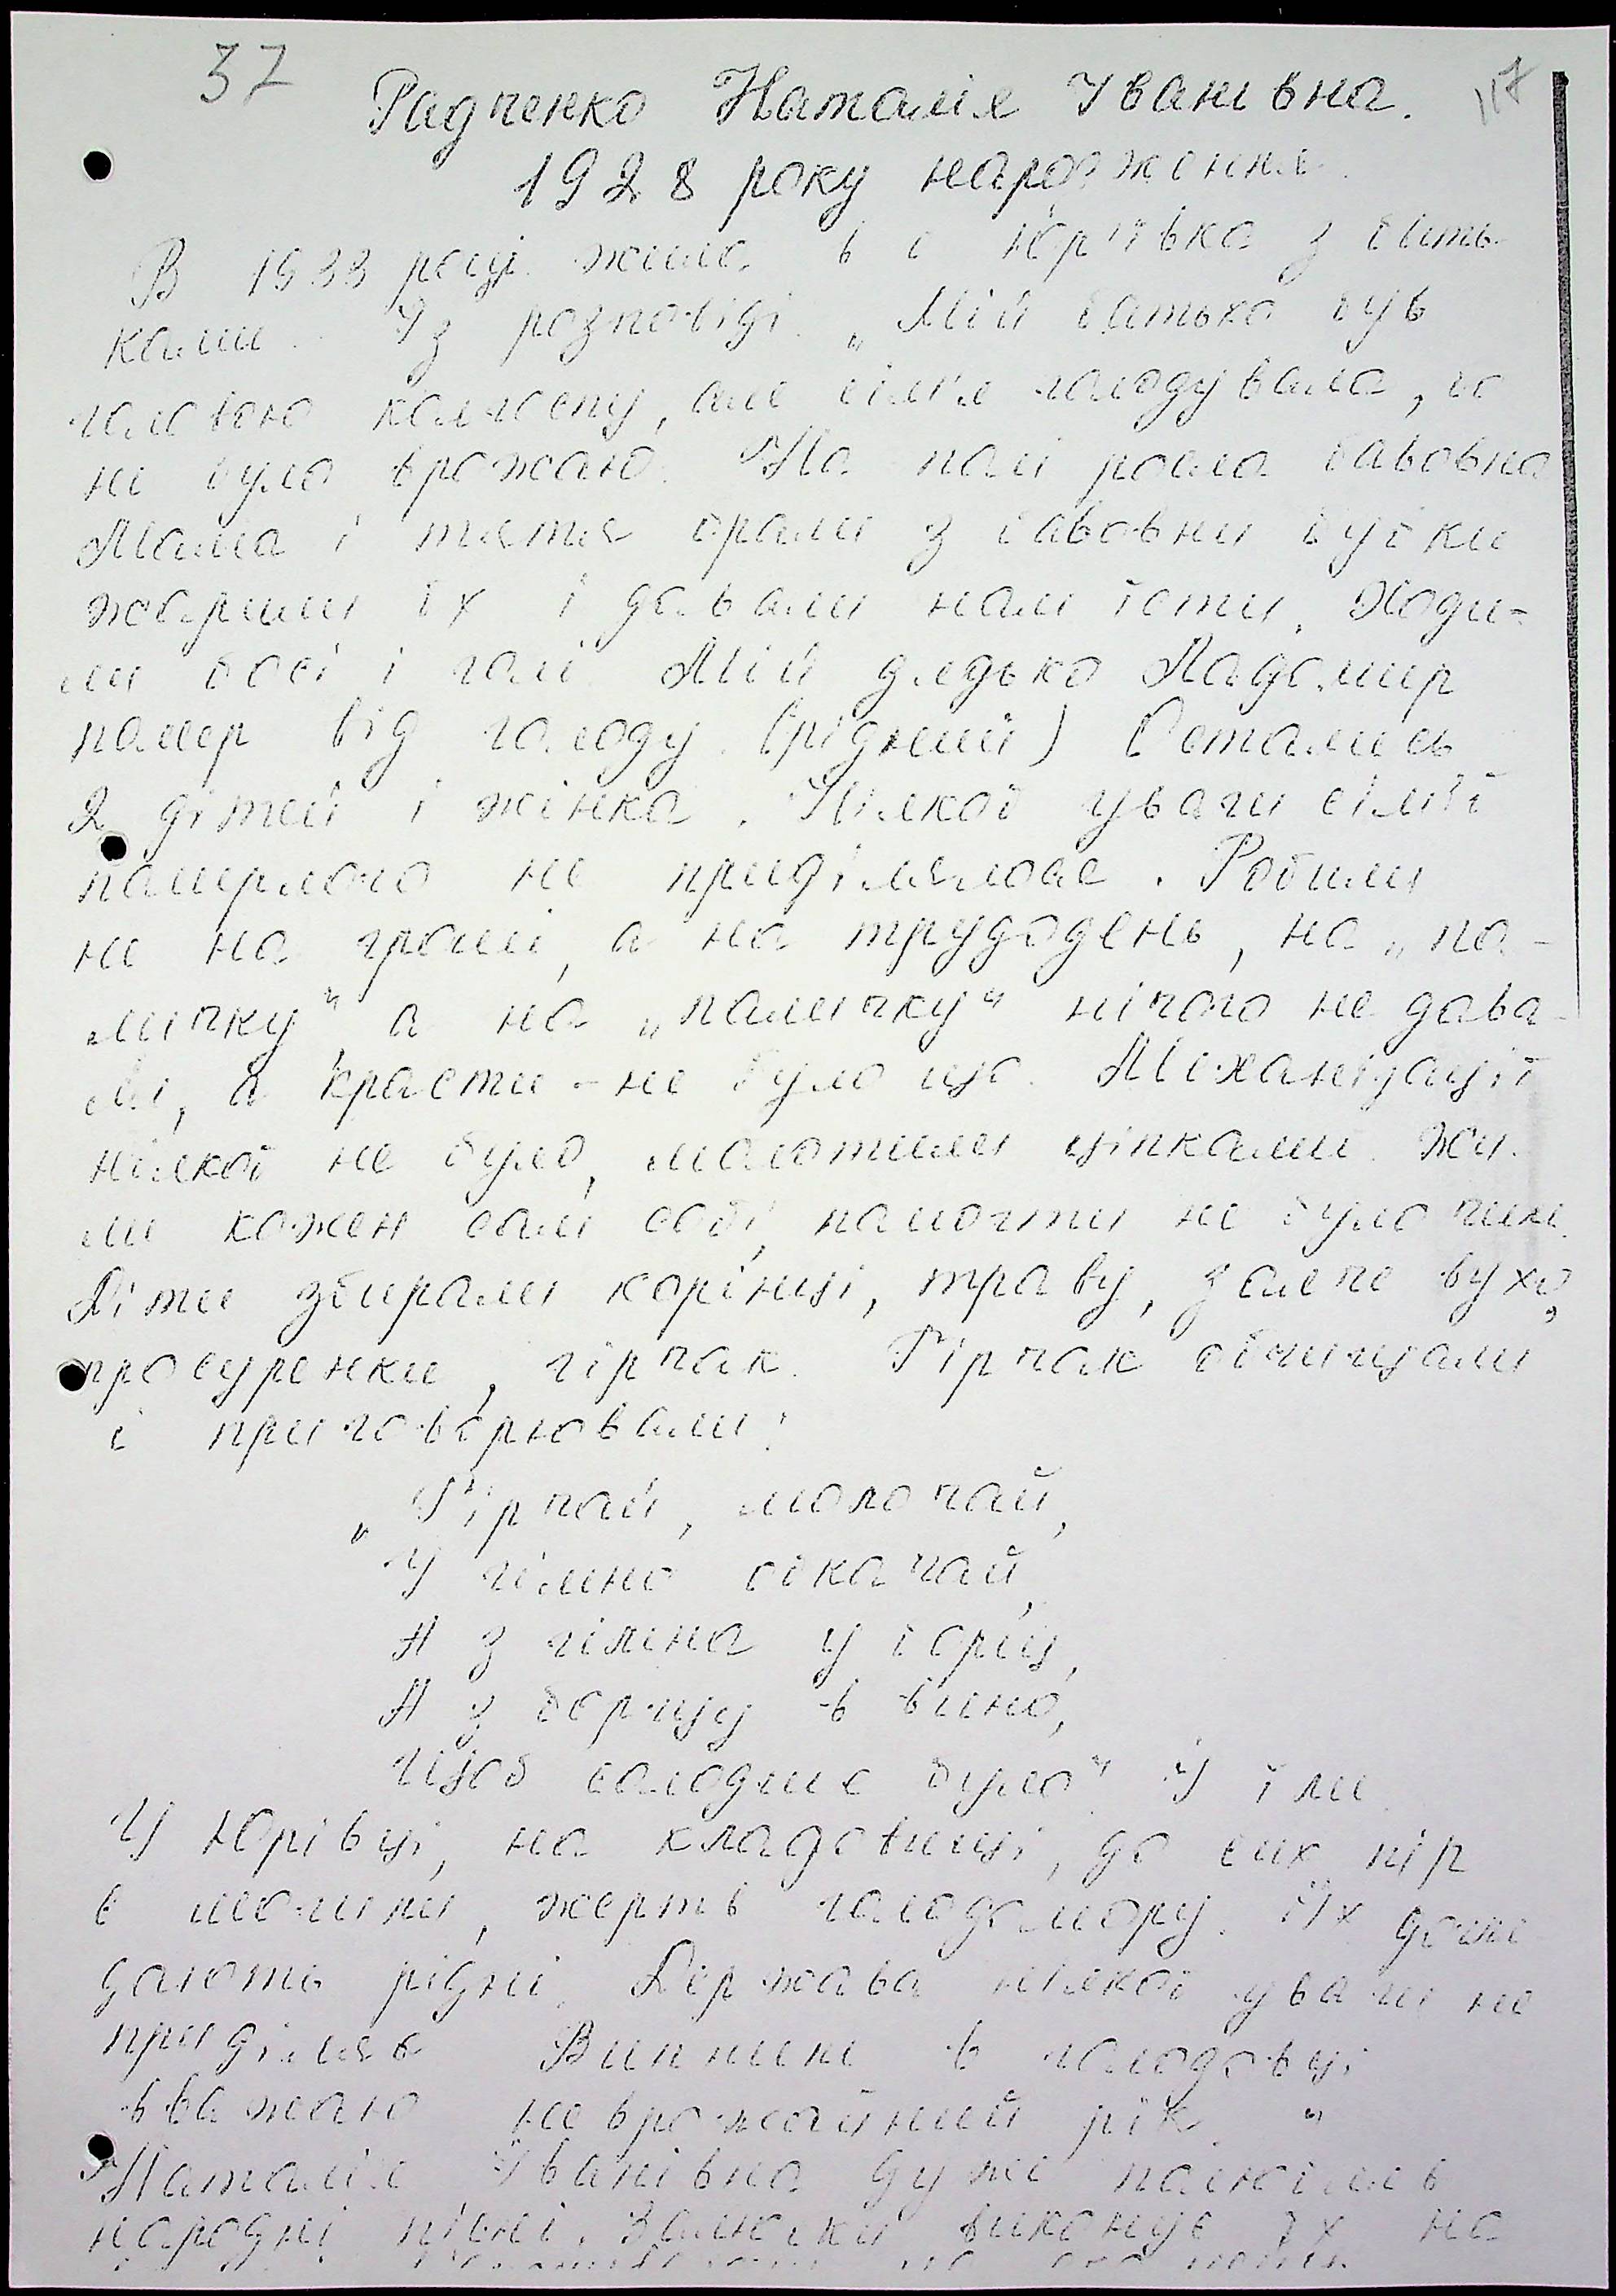 37
117
Радченко Наталія Іванівна.
1928 року народження.
В 1933 році жила в с Юр'ївка з бать-
ками. Із розповіді. „Мій батько був
головою колгоспу, але сім'я голодувала, бо
не було врожаю. На полі росла бавовна
Мама і тятя брали з бавовни бубки
жарили їх і давали нам їсти. Ходи-
ли босі і голі. Мій дядько Ладомир
помер від голоду. (рідний) Остались
2 дітей і жінка. Ніякої уваги сім'ї
памерлого не приділялося. Робили
не на гроші, а на трудодень, на „па-
личку", а на „паличку" нічого не дава-
лі, а красти - не було що. Механізації
ніякої не було, молотили ціпками. Жи-
ли кожен самі собі, помогти не було чим.
Діти збирали корінці, траву, заяче вухо,
просуренки, гірчак. Гірчак обчищали
і приговорювали:
„Гірчай, молочай,
У гімно скачай,
А з гімна у борщ,
А з борщу в вино,
Щоб солодше було". І їли.
У Юрівці, на кладовищі, до сих пір
є могили, жертв голодомору. Їх догля
дають рідні. Держава ніякої уваги не
приділяє. Винними в голодовці
вважаю неврожайний рік."
Наталія Іванівна дуже полюбляє
народні пісні. Залюбки виконує їх на